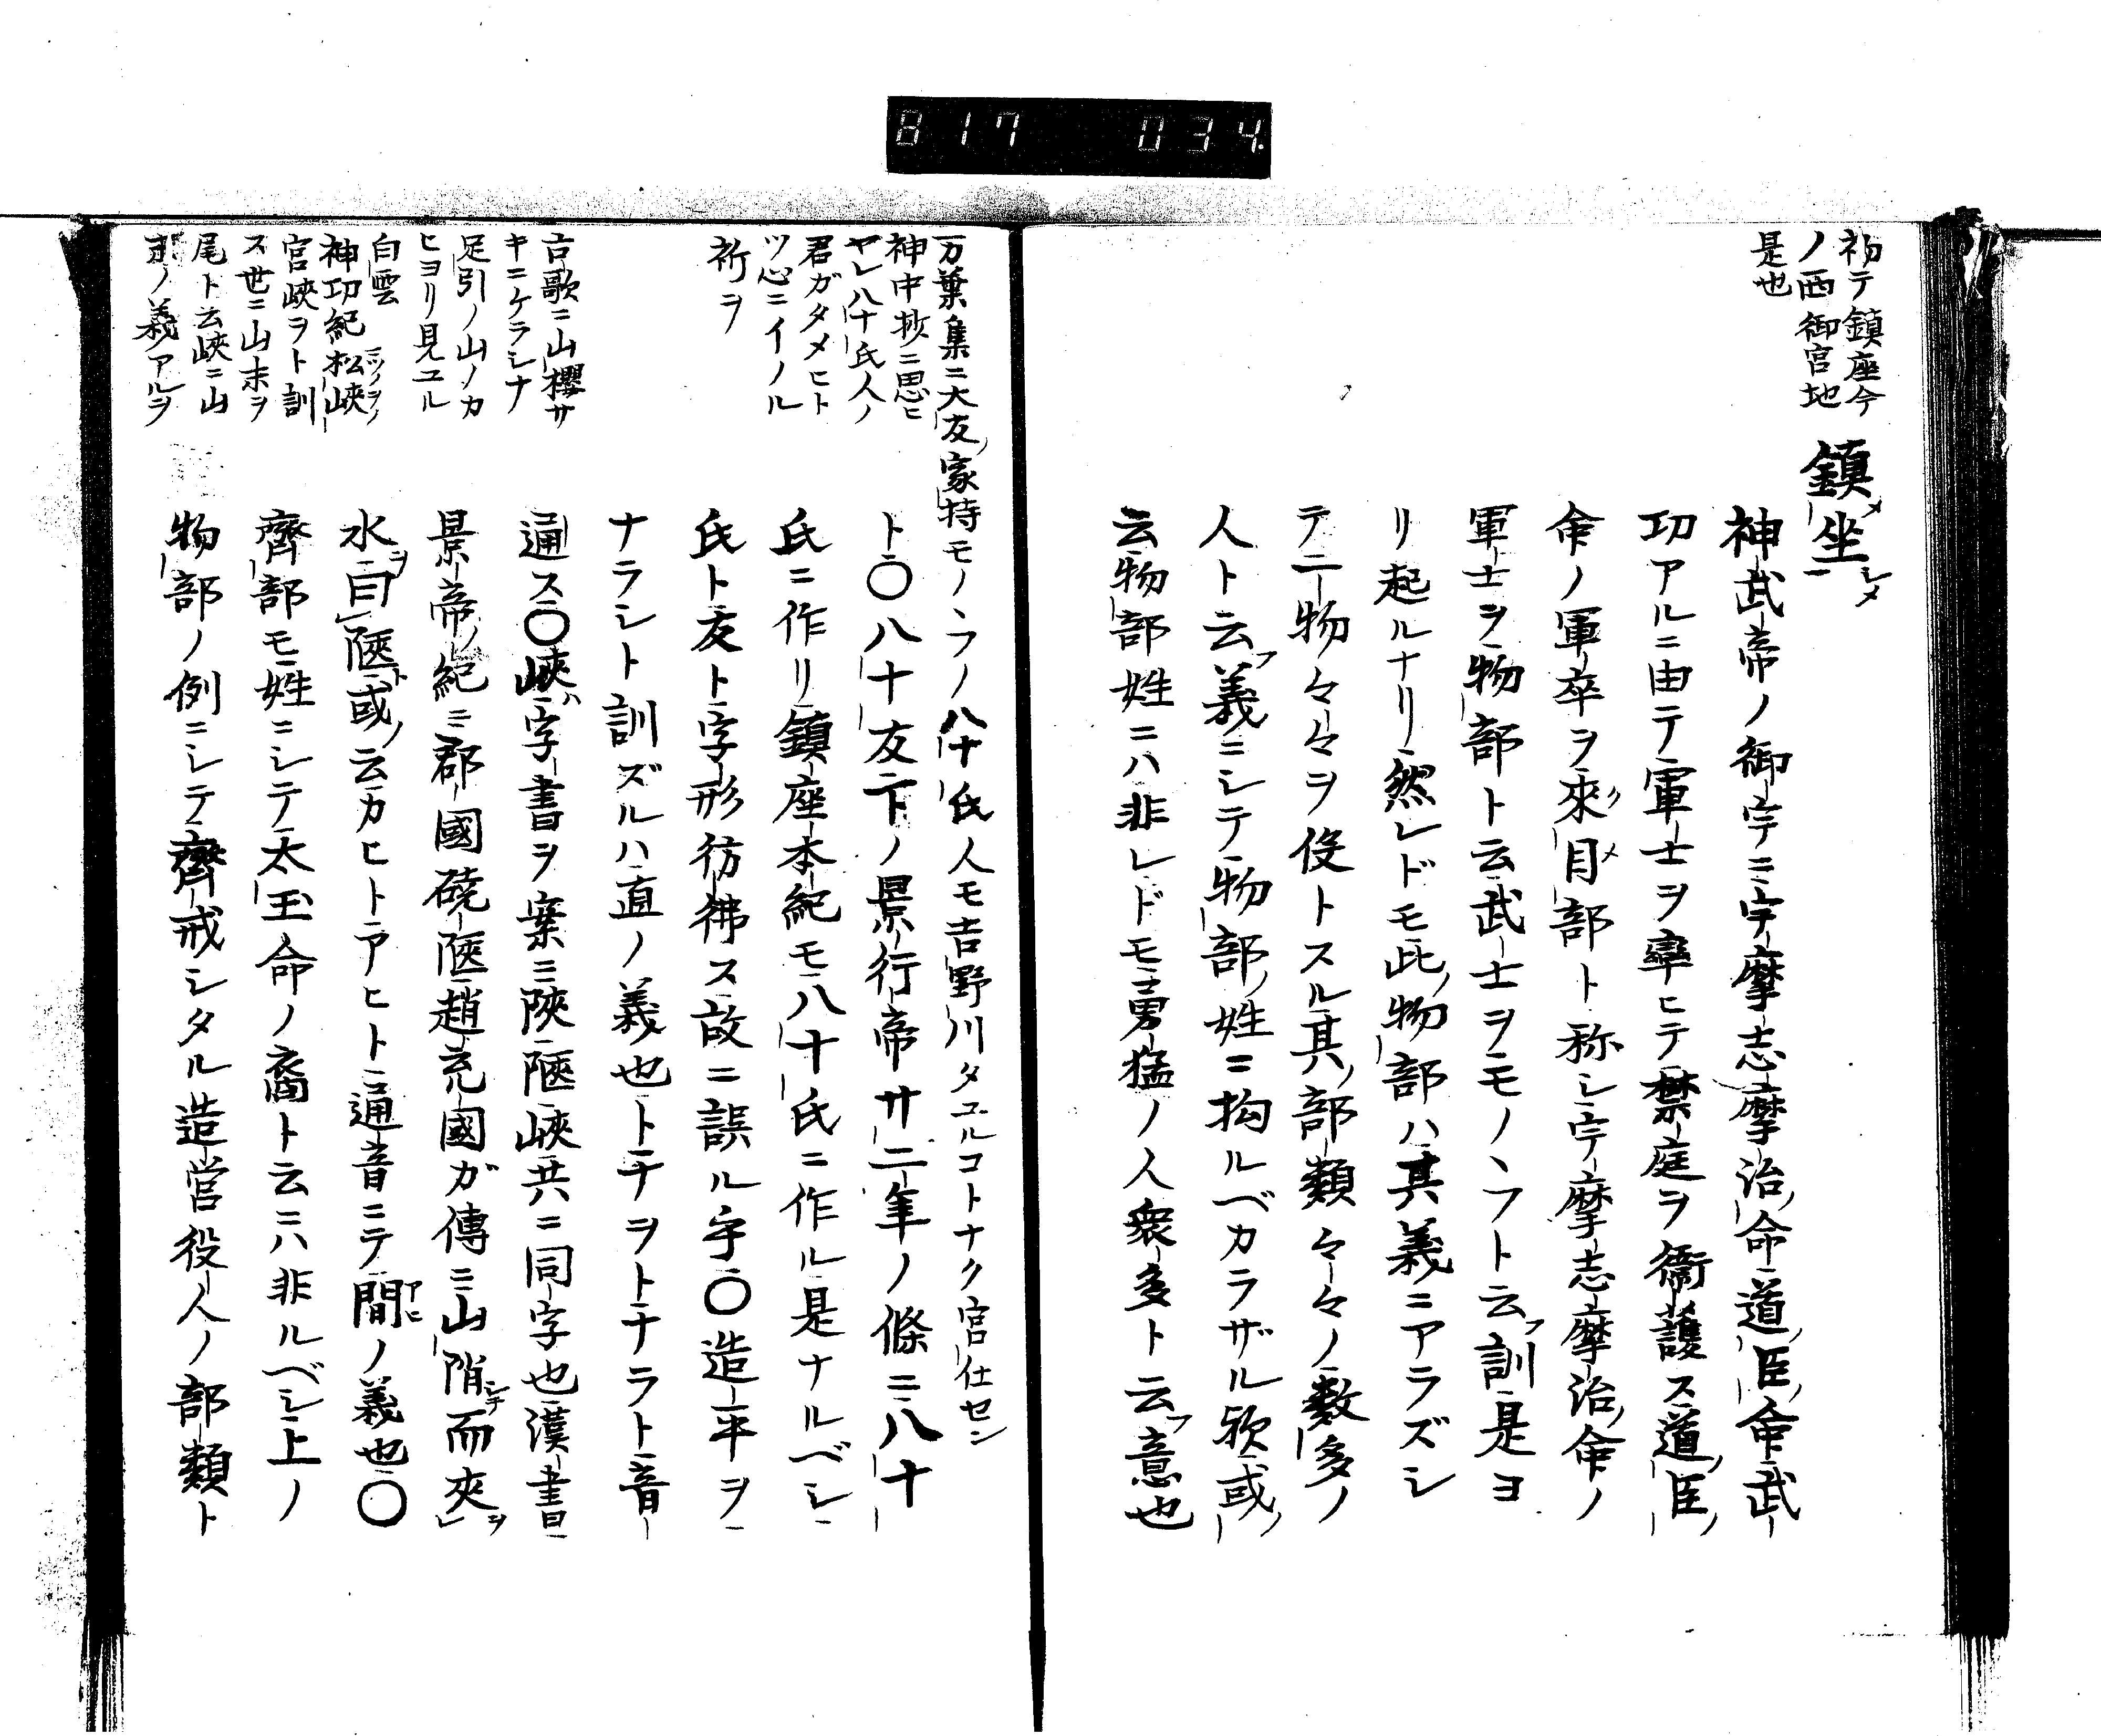 817 034
初テ鎮座今
ノ西御宮地
是也
鎮メ坐シメ
神武帝ノ御宇ニ宇摩志摩治命道臣命武
功アルニ由テ軍士ヲ率ヒテ禁庭ヲ衛護ス道臣
命ノ軍卒ヲ來目部ト称シ宇摩志摩治命ノ
軍士ヲ物部ト云武士ヲモノヽフト云フ訓是ヨ
リ起ルナリ然レドモ此物部ハ其義ニアラズシ
テ物々々ヲ役トスル其部類々々ノ数多ノ
人ト云フ義ニシテ物部ノ姓ニ拘ルベカラザル歟或ハ
云物部姓ニハ非レドモ勇猛ノ人衆多ト云フ意也
万葉集ニ大友ノ家持モノヽフノ八十氏人モ吉野川タユルコトナク宮仕セン
神中抄ニ思ヒ
ヤレ八十氏人ノ
君ガタメヒト
ツ心ニイノル
祈ヲ
ト〇八十友ト景行帝廿二年ノ條ニ八十
氏ニ作リ鎮座本紀モ八十氏ニ作ル是ナルベシ
氏ト友ト字形彷彿ス故ニ誤ル乎〇造平ヲ
ナラシト訓ズルハ直ノ義也トチヲトチラト音
古歌ニ山櫻サ
キニケラシナ
足引ノ山ノカ
ヒヨリ見ユル
白雲
神功紀松峡
宮峡ヲト訓
ス世ニ山末ヲ
尾ト云峡ニ山
末ノ義アルヲ
通ス〇峽ハ字書ヲ案ニ陜陿峽共ニ同字也漢書
景帝ノ紀ニ郡國磽陿趙充國ガ傳ニ山陗而夾
水ヲ曰陿ト或ノ云カヒトアヒト通音ニテ間ノ義也〇
齊部モ姓ニシテ太玉命ノ裔ト云ニハ非ルベシ上ノ
物部ノ例ニシテ齊戒シタル造営役人ノ部類ト